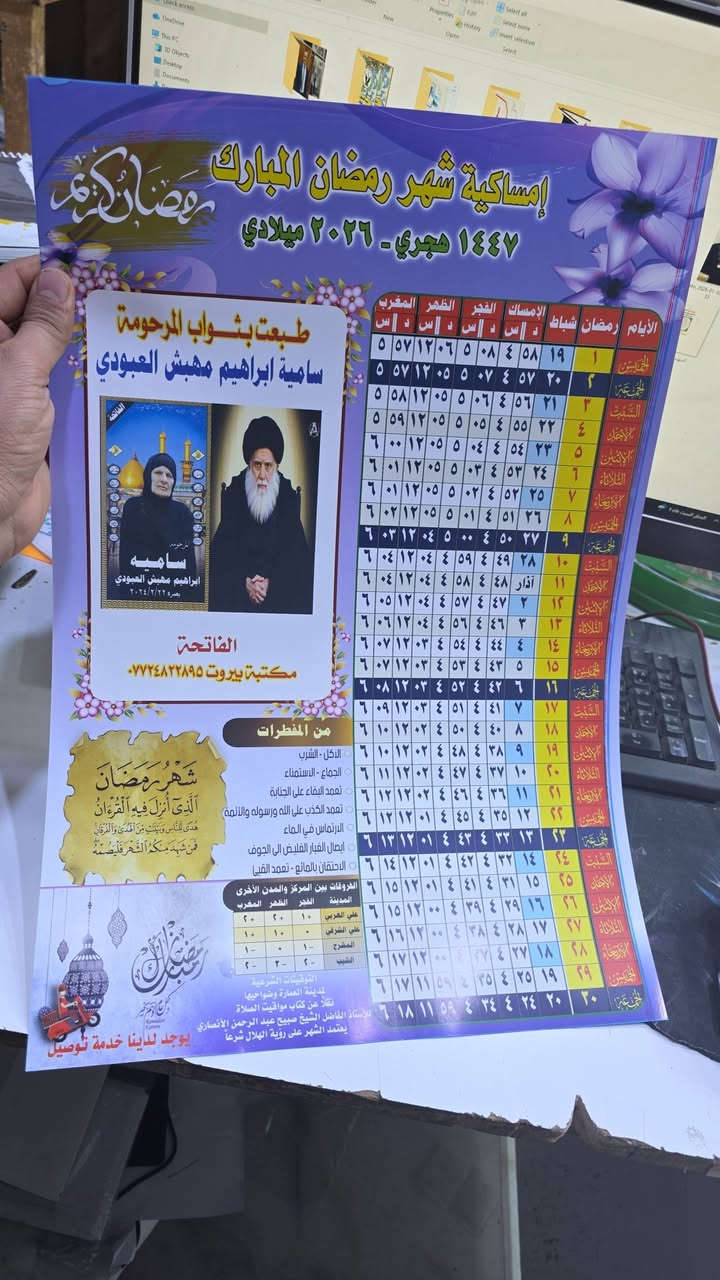 Quick access
OneDrive
This PC
3D Objects
Desktop
Documents
New
Properties
Edit
History
Open
Select all
Select none
Invert selection
Select
رمضان كريم
إمساكية شهر رمضان المبارك
١٤٤٧ هجري - ٢٠٢٦ ميلادي
الأيام رمضان شباط الإمساك الفجر الظهر المغرب
د س د س د س د س
الخميس ١ ١٩ ٥٨ ٤ ٠٨ ٥ ٠٦ ١٢ ٥٧ ٥
الجمعة ٢ ٢٠ ٥٧ ٤ ٠٧ ٥ ٠٥ ١٢ ٥٧ ٥
السبت ٣ ٢١ ٥٦ ٤ ٠٦ ٥ ٠٥ ١٢ ٥٨ ٥
الأحد ٤ ٢٢ ٥٥ ٤ ٠٥ ٥ ٠٥ ١٢ ٥٩ ٥
الاثنين ٥ ٢٣ ٥٤ ٤ ٠٤ ٥ ٠٥ ١٢ ٠٠ ٦
الثلاثاء ٦ ٢٤ ٥٣ ٤ ٠٣ ٥ ٠٥ ١٢ ٠١ ٦
الاربعاء ٧ ٢٥ ٥٢ ٤ ٠٢ ٥ ٠٥ ١٢ ٠١ ٦
الخميس ٨ ٢٦ ٥١ ٤ ٠١ ٥ ٠٥ ١٢ ٠٢ ٦
الجمعة ٩ ٢٧ ٥٠ ٤ ٠٠ ٥ ٠٤ ١٢ ٠٢ ٦
السبت ١٠ ٢٨ ٤٩ ٤ ٥٩ ٤ ٠٤ ١٢ ٠٤ ٦
الأحد ١١ آذار ٤٨ ٤ ٥٨ ٤ ٠٤ ١٢ ٠٤ ٦
الاثنين ١٢ ٢ ٤٧ ٤ ٥٧ ٤ ٠٤ ١٢ ٠٥ ٦
الثلاثاء ١٣ ٣ ٤٦ ٤ ٥٦ ٤ ٠٤ ١٢ ٠٦ ٦
الاربعاء ١٤ ٤ ٤٤ ٤ ٥٤ ٤ ٠٣ ١٢ ٠٧ ٦
الخميس ١٥ ٥ ٤٣ ٤ ٥٣ ٤ ٠٣ ١٢ ٠٧ ٦
الجمعة ١٦ ٦ ٤٢ ٤ ٥٢ ٤ ٠٣ ١٢ ٠٨ ٦
السبت ١٧ ٧ ٤١ ٤ ٥١ ٤ ٠٣ ١٢ ٠٩ ٦
الأحد ١٨ ٨ ٤٠ ٤ ٥٠ ٤ ٠٢ ١٢ ١٠ ٦
الاثنين ١٩ ٩ ٣٨ ٤ ٤٨ ٤ ٠٢ ١٢ ١٠ ٦
الثلاثاء ٢٠ ١٠ ٣٧ ٤ ٤٧ ٤ ٠٢ ١٢ ١١ ٦
الاربعاء ٢١ ١١ ٣٦ ٤ ٤٦ ٤ ٠٢ ١٢ ١١ ٦
الخميس ٢٢ ١٢ ٣٥ ٤ ٤٥ ٤ ٠١ ١٢ ١٢ ٦
الجمعة ٢٣ ١٣ ٣٣ ٤ ٤٣ ٤ ٠١ ١٢ ١٣ ٦
السبت ٢٤ ١٤ ٣٢ ٤ ٤٢ ٤ ٠١ ١٢ ١٤ ٦
الأحد ٢٥ ١٥ ٣١ ٤ ٤١ ٤ ٠١ ١٢ ١٥ ٦
الاثنين ٢٦ ١٦ ٢٩ ٤ ٣٩ ٤ ٠٠ ١٢ ١٥ ٦
الثلاثاء ٢٧ ١٧ ٢٨ ٤ ٣٨ ٤ ٠٠ ١٢ ١٦ ٦
الاربعاء ٢٨ ١٨ ٢٧ ٤ ٣٧ ٤ ٠٠ ١٢ ١٧ ٦
الخميس ٢٩ ١٩ ٢٥ ٤ ٣٥ ٤ ٠٠ ١٢ ١٧ ٦
الجمعة ٣٠ ٢٠ ٢٤ ٤ ٣٤ ٤ ٥٩ ١١ ١٨ ٦
طبعت بثواب المرحومة
سامية ابراهيم مهبش العبودي
الفاتحة
المرحومة
سامية
ابراهيم مهبش العبودي
٢٠٢٤/٢/٢٢
الفاتحة
مكتبة بيروت ٠٧٧٢٤٨٢٢٨٩٥
من المفطرات
الاكل - الشرب
الجماع - الاستمناء
تعمد البقاء على الجنابة
تعمد الكذب على الله ورسوله والأئمة
الارتماس في الماء
ايصال الغبار الغليض الى الجوف
الاحتقان بالمائع - تعمد القيئ
شَهْرُ رَمَضَانَ
الَّذِي أُنزِلَ فِيهِ الْقُرْءَانُ
هُدًى لِّلنَّاسِ وَبَيِّنَاتٍ مِّنَ الْهُدَى وَالْفُرْقَانِ
فَمَن شَهِدَ مِنكُمُ الشَّهْرَ فَلْيَصُمْهُ
الفروقات بين المركز والمدن الأخرى
المدينة الفجر الظهر المغرب
علي الغربي +١ +٢ +٢
علي الشرقي ٠ +١ +١
المشرح -١ ٠ -١
الطيب -٢ -٢ -٢
التوقيتات الشرعية
لمدينة العمارة وضواحيها
نقلاً عن كتاب مواقيت الصلاة
للأستاذ الفاضل الشيخ صبيح عبد الرحمن الأنصاري
يعتمد الشهر على رؤية الهلال شرعاً
رمضان مبارك
يوجد لدينا خدمة توصيل